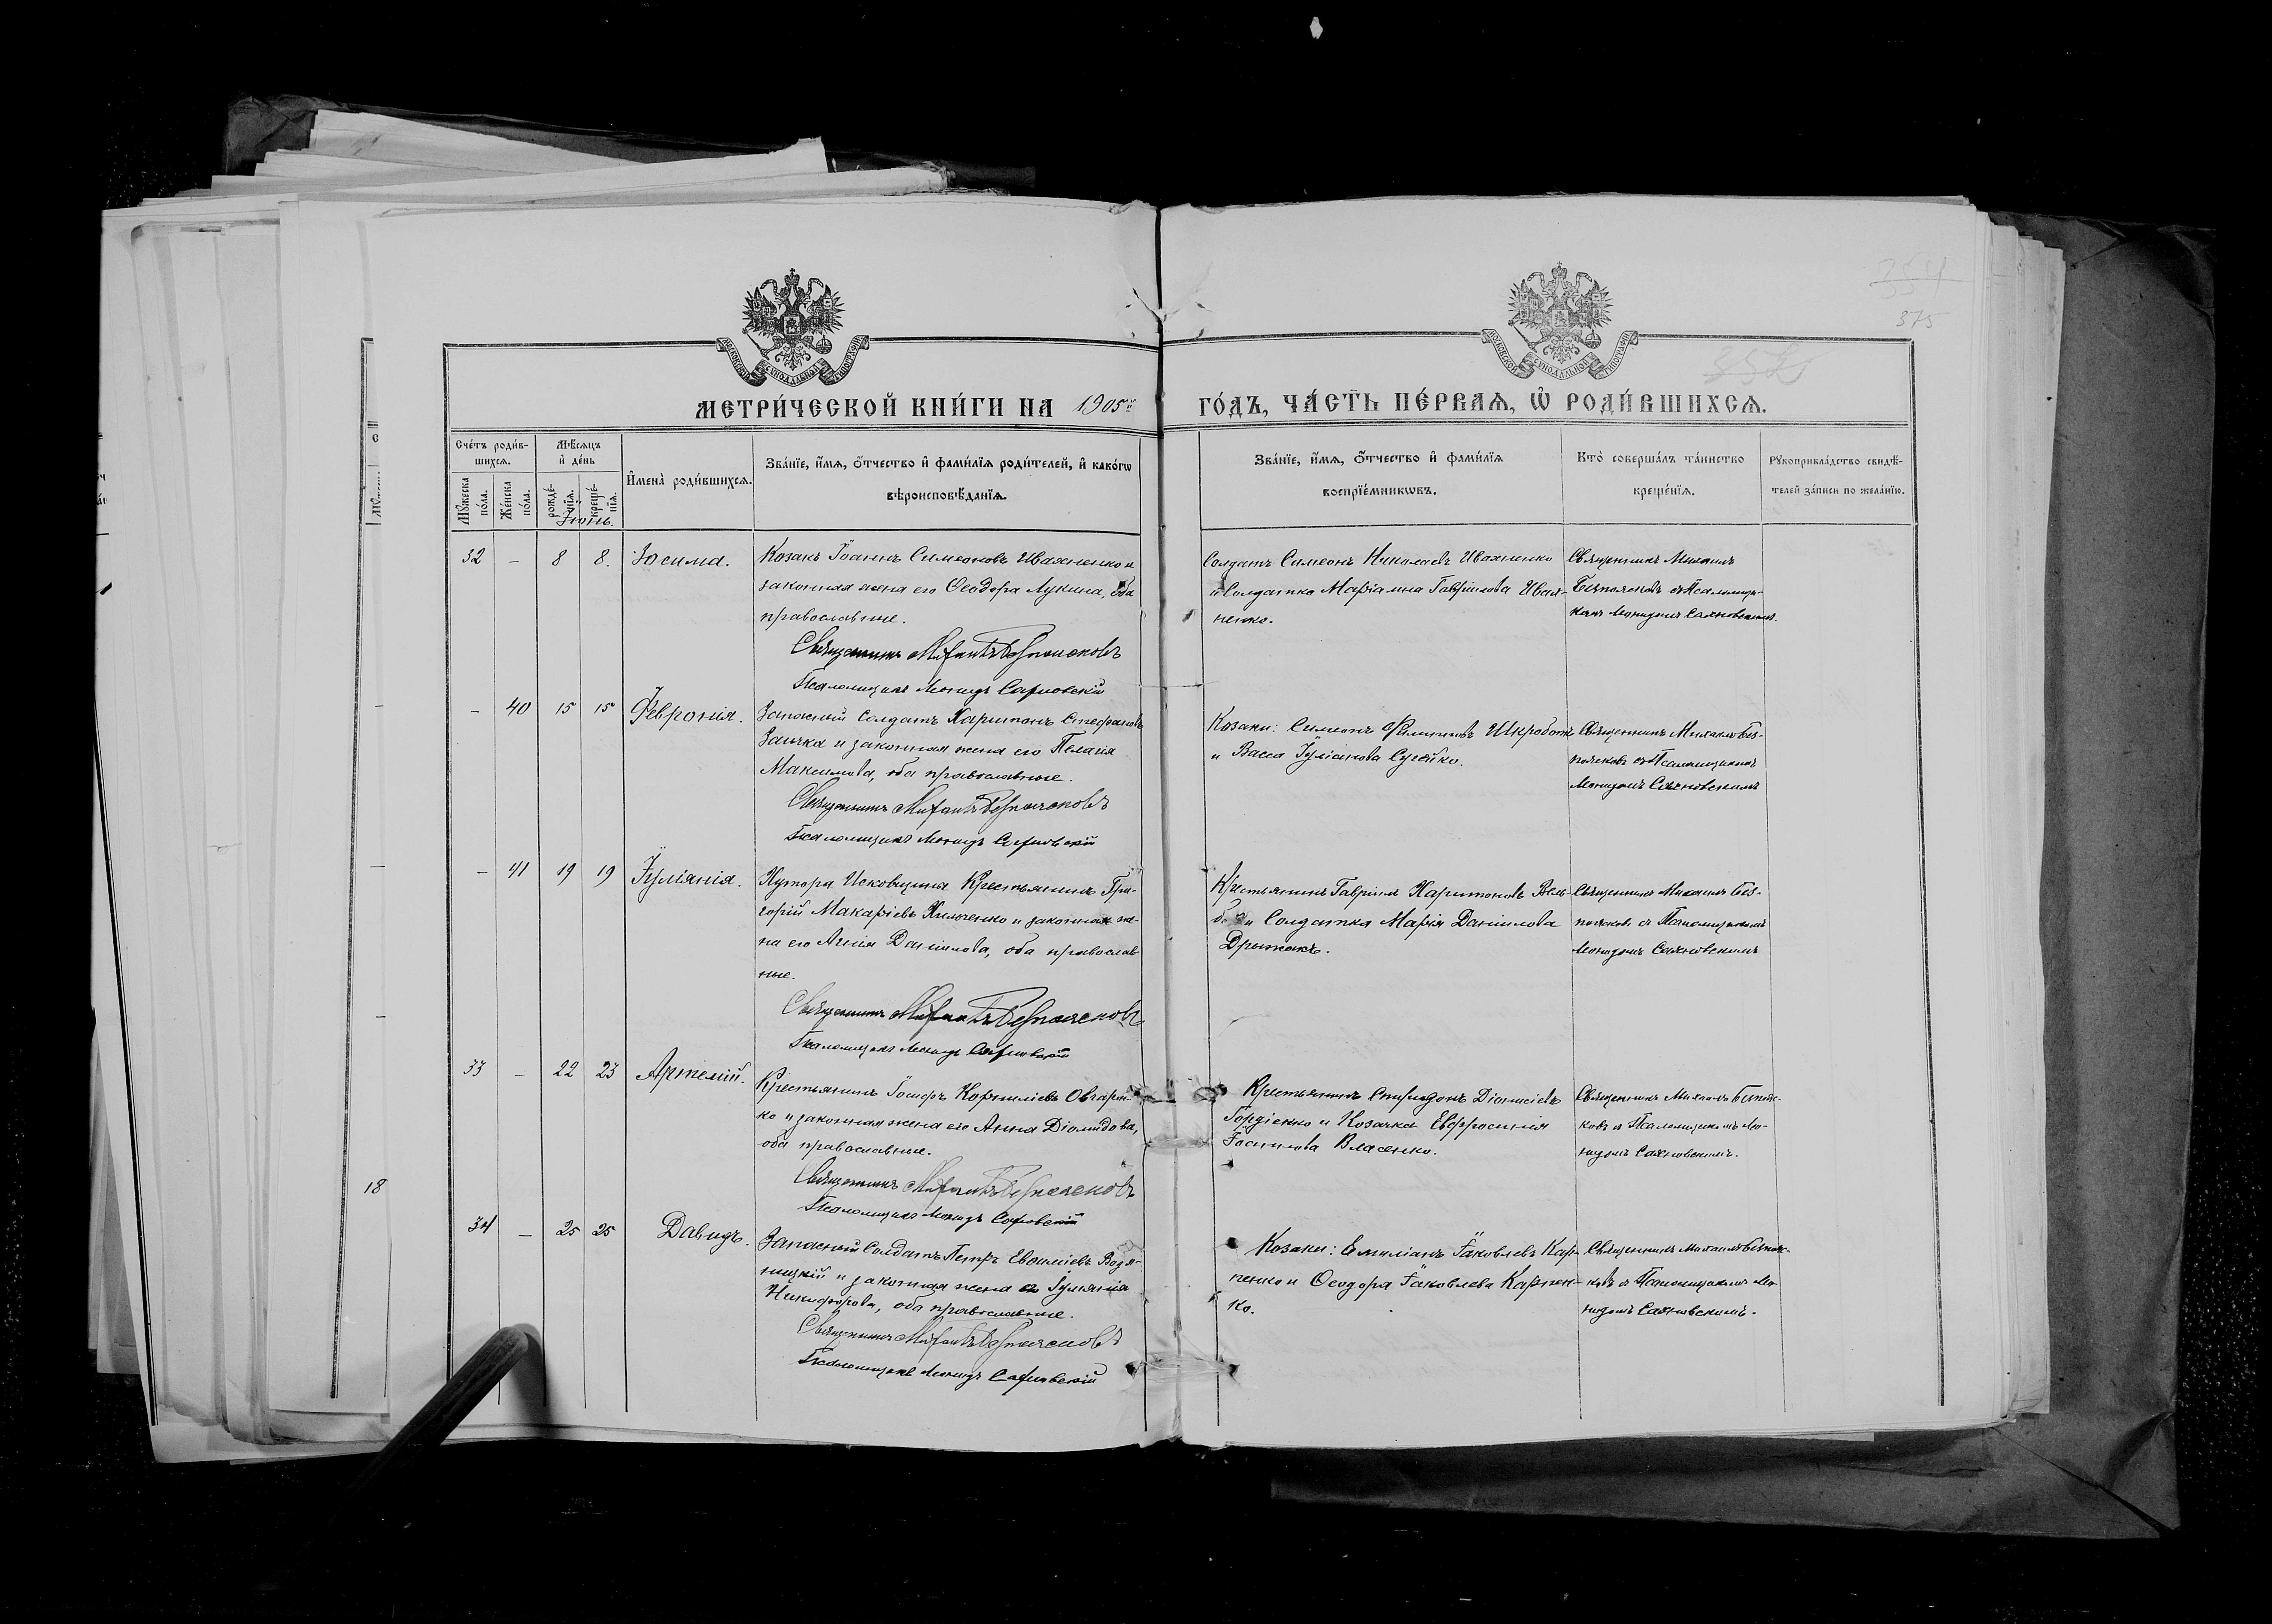 354
375
МЕТРИ́ЧЕСКОЙ КНИ́ГИ НА 1905й ГО́ДЪ, ЧА́СТЬ ПЕ́РВАѦ, Ѡ РОДИ́ВШИХСѦ.
Сче́тъ роди́в-
шихсѧ.
Мꙋ́жеска по́ла.
Же́нска по́ла.
Мѣ́сѧцъ
и҆ де́нь
рожде́-
нїѧ.
креще́-
нїѧ.
И҆мена̀ роди́вшихсѧ.
Зва́нїе, и҆́мѧ, ѻ҆́тчество и҆ фами́лїѧ роди́телей, и҆ како́гѡ
вѣроисповѣ́данїѧ.
Зва́нїе, и҆́мѧ, ѻ҆́тчество и҆ фами́лїѧ
воспрїе́мникѡвъ.
Кто̀ соверша́лъ та́инство
креще́нїѧ.
Рꙋкоприкла́дство свидѣ́-
телей за́писи по жела́нїю.
Іюнь.
32 — 8 8. Зосима.
Козакъ Іоаннъ Симеоновъ Ивахненко и
законная жена его Ѳеодора Лукина, оба
православные.
Священникъ Михаилъ Безпоясковъ
Псаломщикъ Леонидъ Сахновскій
Солдатъ Симеонъ Николаевъ Ивахненко
и Солдатка Маріамна Гавріилова Ивах-
ненко.
Священникъ Михаилъ
Безпоясковъ съ Псаломщи-
комъ Леонидомъ Сахновскимъ.
— 40 15 15 Февронія.
Запасный Солдатъ Харитонъ Стефановъ
Заичка и законная жена его Пелагія
Максимова, оба православные.
Священникъ Михаилъ Безпоясковъ
Псаломщикъ Леонидъ Сахновскій
Козаки: Симеонъ Филипповъ Шкроботъ
и Васса Іуліанова Сугейко.
Священникъ Михаилъ Без-
поясковъ съ Псаломщикомъ
Леонидомъ Сахновскимъ
— 41 19 19 Іуліанія.
Хутора Исковщина Крестьянинъ Гри-
горій Макаріевъ Хильченко и законная же-
на его Агнія Даніилова, оба православ-
ные.
Священникъ Михаилъ Безпоясковъ
Псаломщикъ Леонидъ Сахновскій
Крестьянинъ Гавріилъ Харитоновъ
и Солдатка Марія Даніилова
Дрыжакъ.
Священникъ Михаилъ Без-
поясковъ съ Псаломщикомъ
Леонидомъ Сахновскимъ
33 — 22 23 Артемій.
Крестьянинъ Іосифъ Корниліевъ Овчарен-
ко и законная жена его Анна Діомидова,
оба православные.
Священникъ Михаилъ Безпоясковъ
Псаломщикъ Леонидъ Сахновскій
Крестьянинъ Спиридонъ Діонисіевъ
Гордіенко и Козачка Евфросинія
Іосифова Власенко.
Священникъ Михаилъ Безпояс-
ковъ съ Псаломщикомъ Лео-
нидомъ Сахновскимъ.
34 — 25 25 Давидъ.
Запасный Солдатъ Петръ Евѳиміевъ Водя-
ницкій и законная жена его Іуліанія
Никифорова, оба православные.
Священникъ Михаилъ Безпоясковъ
Псаломщикъ Леонидъ Сахновскій
Козаки: Емиліанъ Іаковлевъ Карп-
пенко и Ѳеодора Іаковлева Карпен-
ко.
Священникъ Михаилъ Безпояс-
ковъ съ Псаломщикомъ Лео-
нидомъ Сахновскимъ.
18